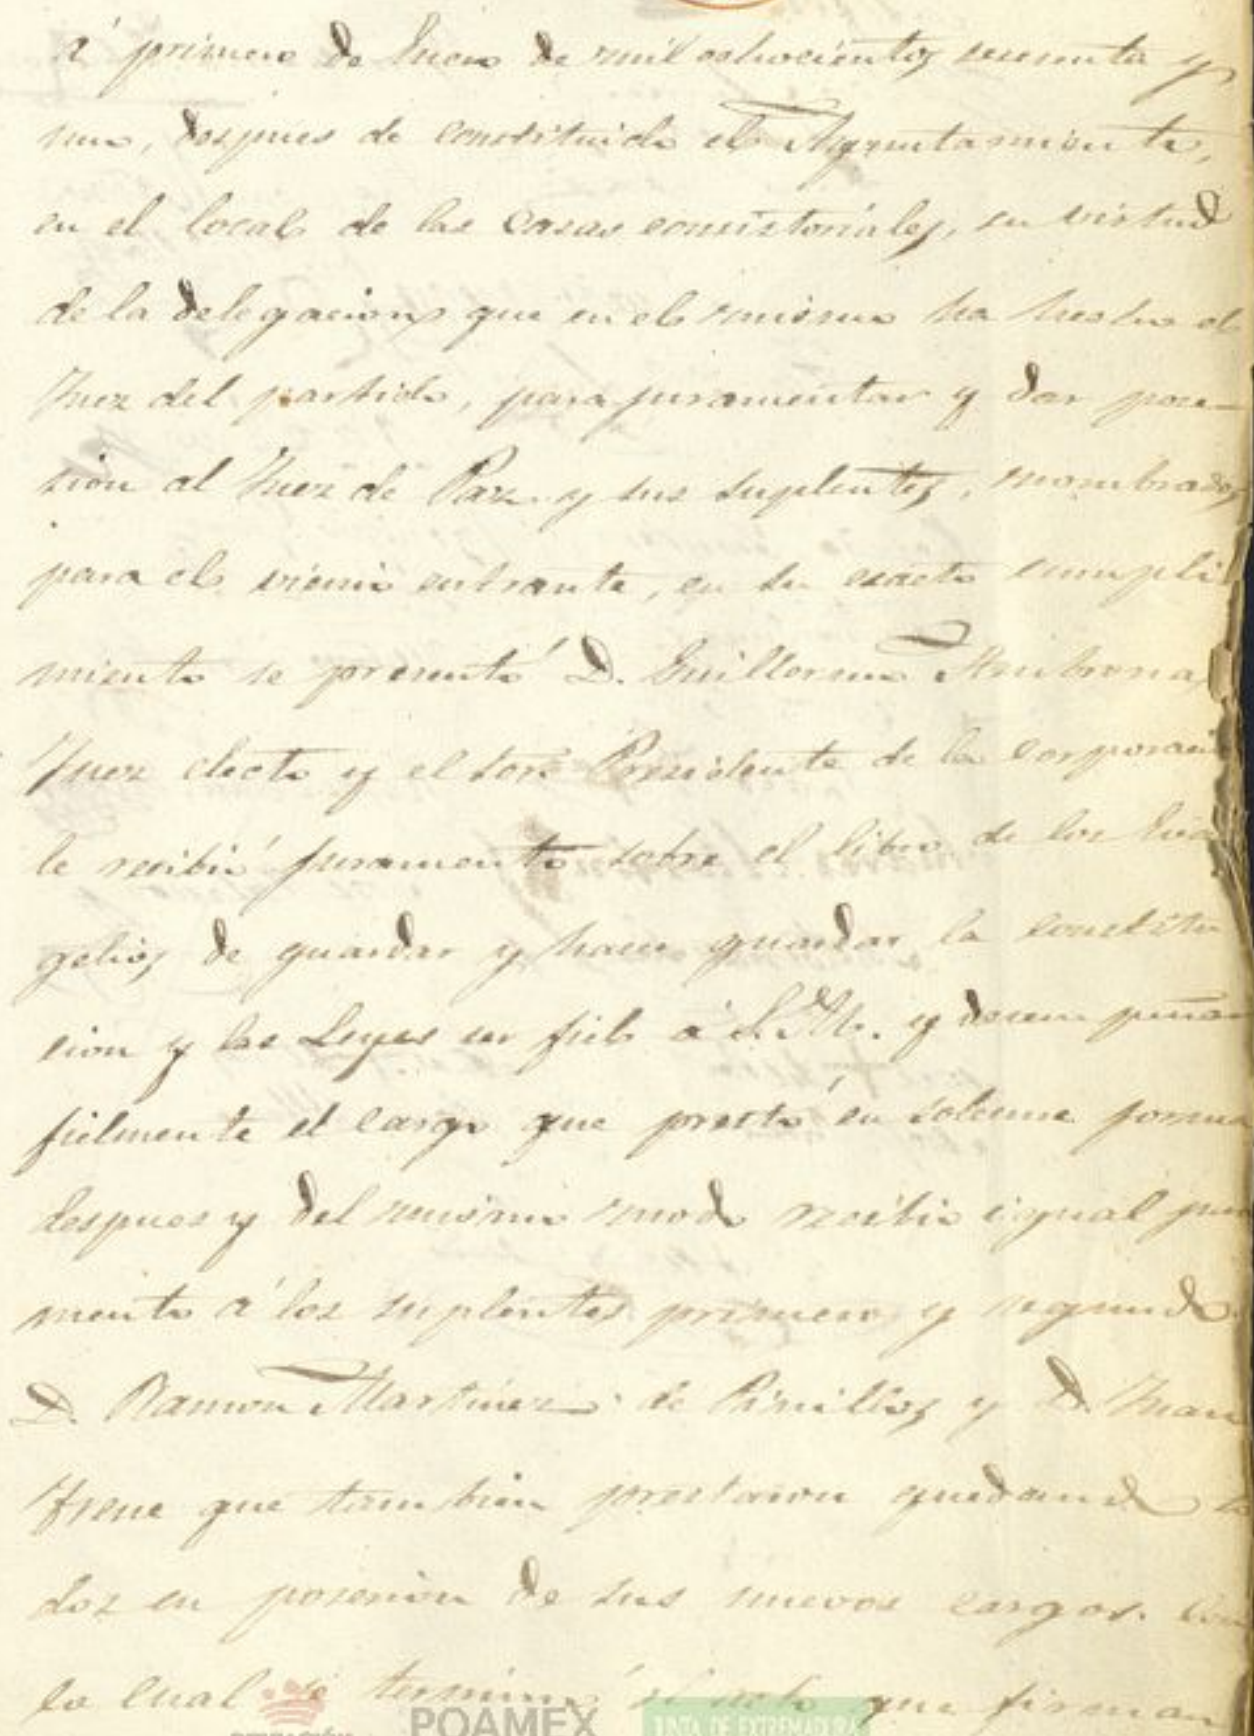 á primero de Enero de mil ochocientos sesenta y
uno, despues de constituido el Ayuntamiento,
en el local de las casas consistoriales, en virtud
de la delegacion que en el mismo ha hecho el
Juez del partido, para juramentar y dar pose-
sion al Juez de Paz y sus suplentes, nombrados
para el vienio entrante, en su exacto cumpli
miento se presentó D. Guillermo Ambrona,
Juez electo y el Sor. Presidente de la corporacion
le recibió juramento sobre el libro de los Evan
gelios de guardar y hacer guardar la constitu
cion y las Leyes ser fiel á S. M. y desempeñar
fielmente el cargo que prestó en solemne forma
despues y del mismo modo recibio igual jura
mento á los suplentes primero y segundo
D. Ramon Martinez de Pinillos y D. Juan
que tambien prestaron quedando to
dos en posesion de sus nuevos cargos. Con
lo cual se terminó el acto que firman
POAMEX
JUNTA DE EXTREMADURA